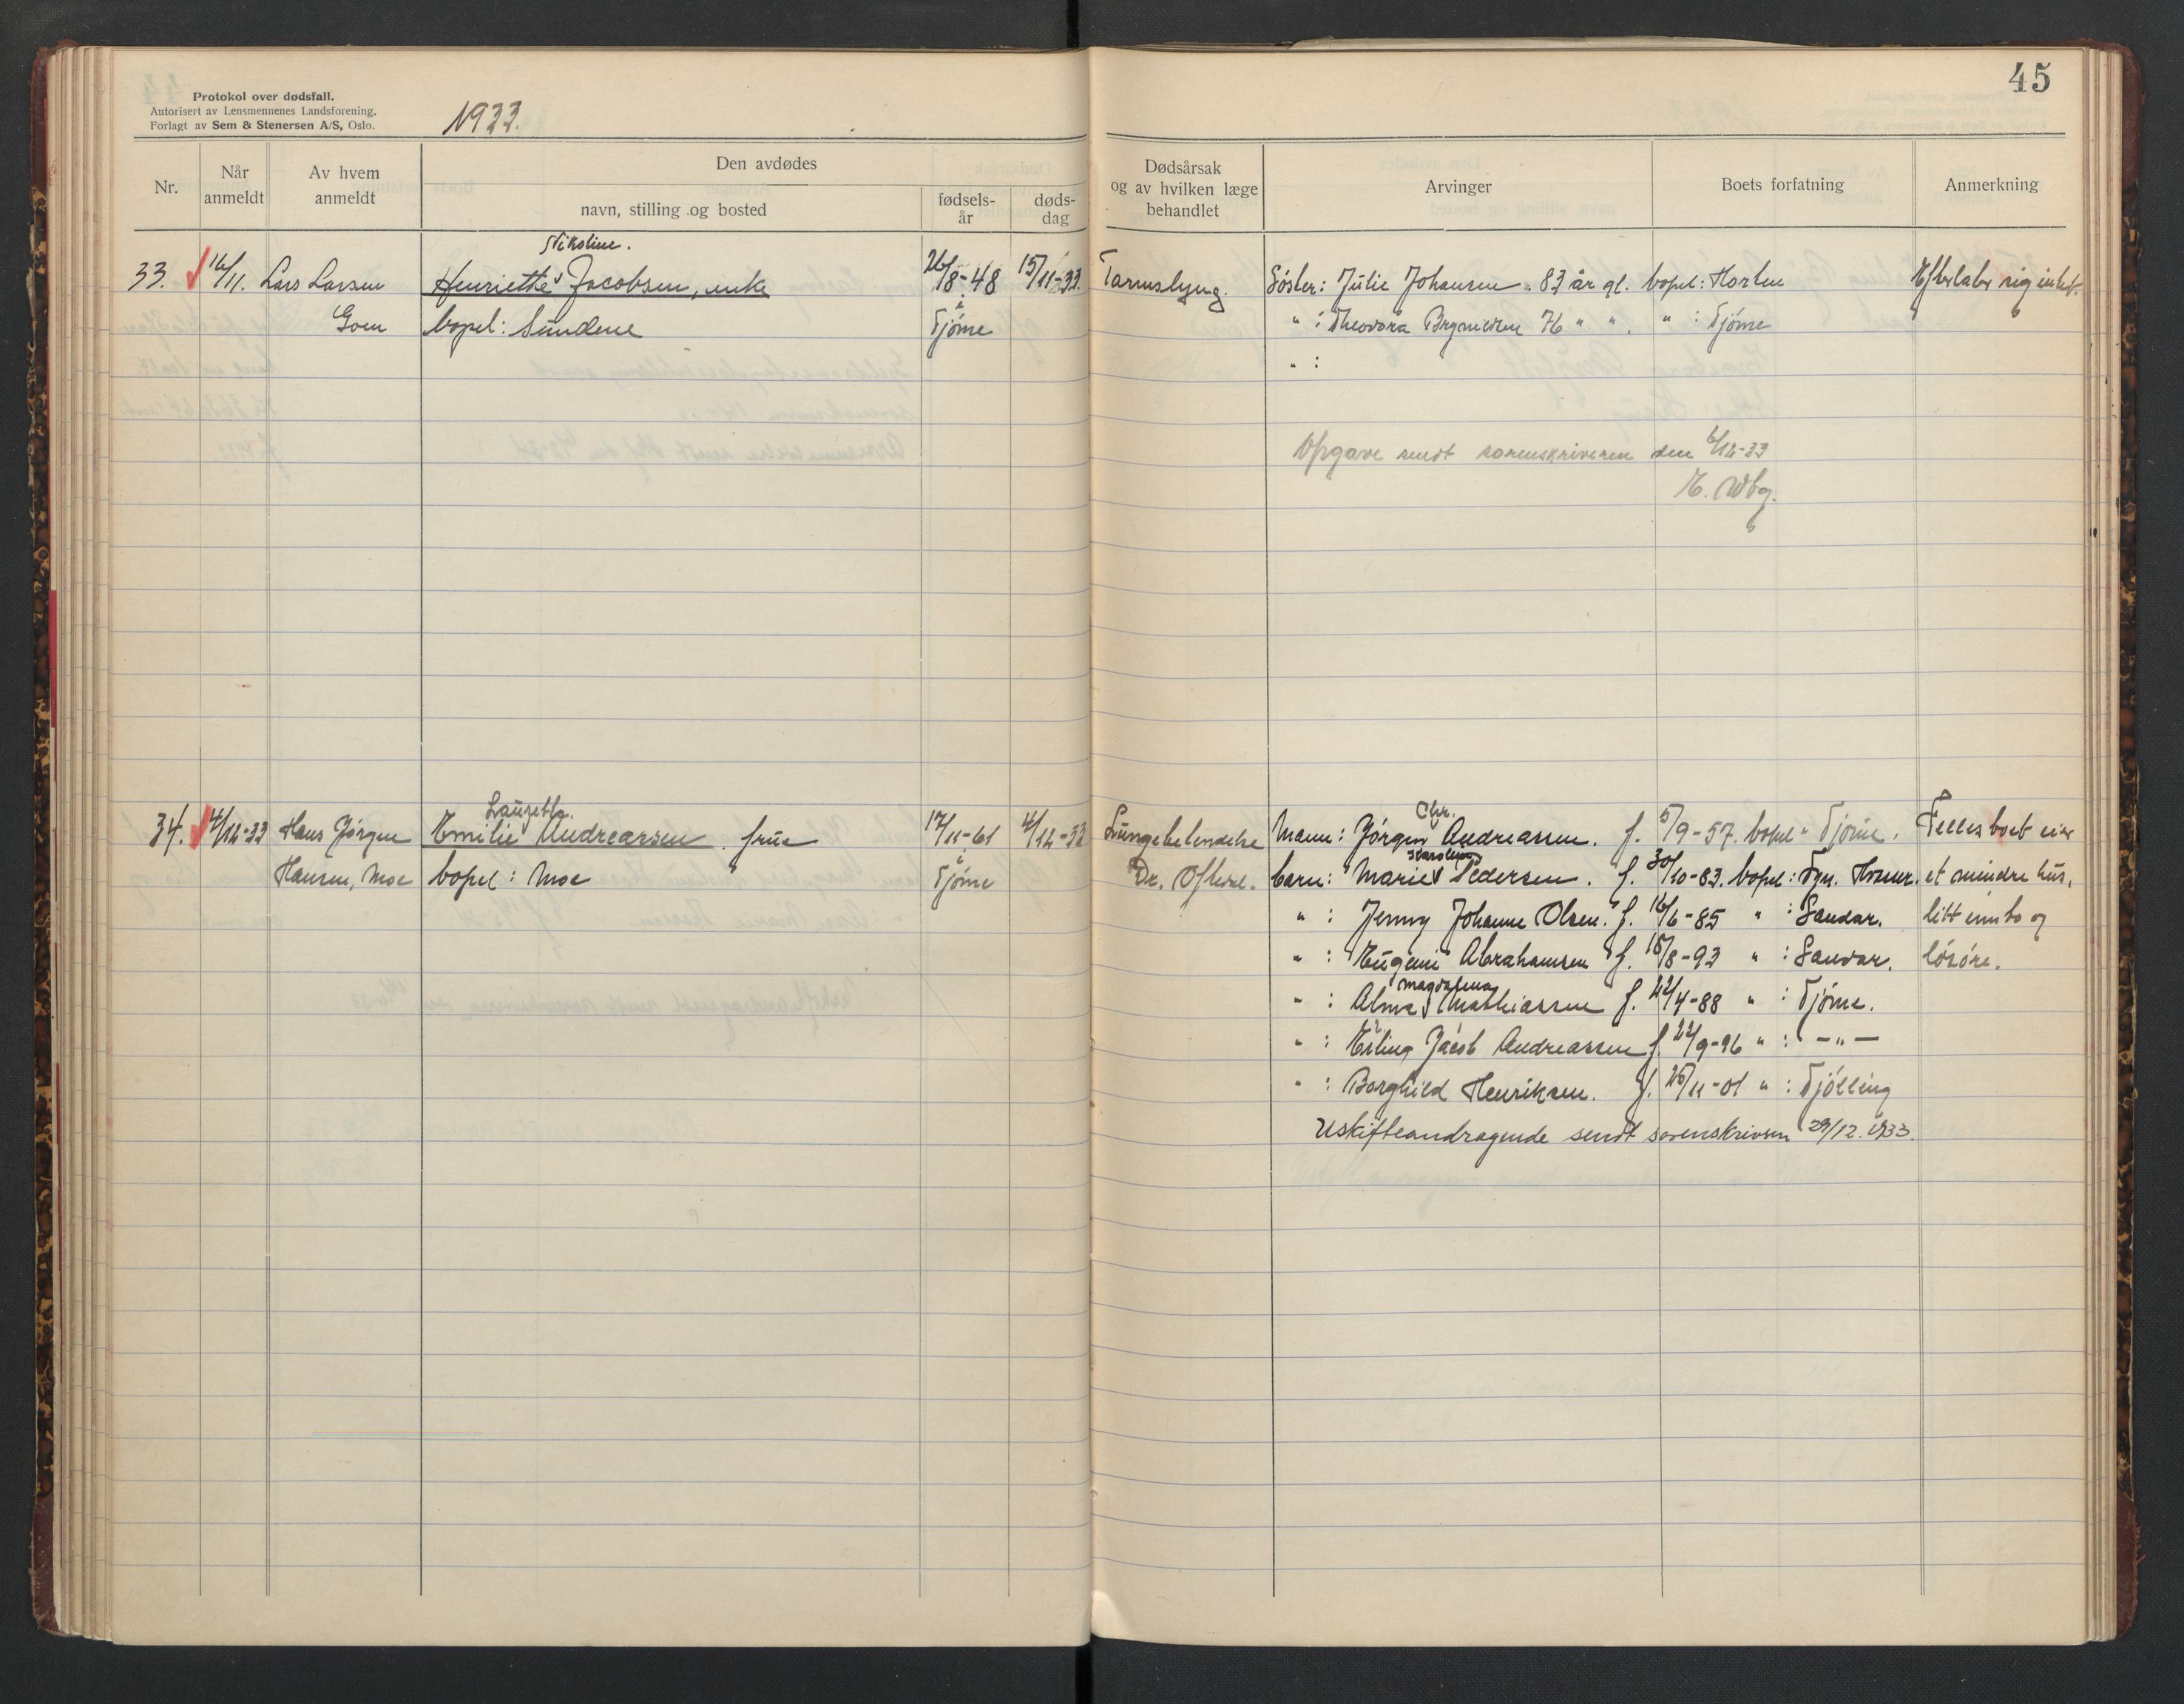 45
Protokol over dødsfall.
Autorisert av Lensmennenes Landsforening.
Forlagt av Sem & Stenersen A/S, Oslo.
1933.
Nr. Når anmeldt Av hvem anmeldt Den avdødes navn, stilling og bosted fødsels-år døds-dag Dødsårsak og av hvilken læge behandlet Arvinger Boets forfatning Anmerkning
Nikoline.
33. 16/11. Lars Larsen Henriette Jacobsen, enke 26/8-48 15/11-33. Tarmslyng. Søster: Julie Johansen 83 år gl. bopel: Horten Efterlater sig intet.
Goen bopel: Sundene Tjøme " : Theodora Brynildsen 76 " " . " : Tjøme
" :
Opgave sendt sorenskriveren den 6/12-33
Lauretta. Chr.
34. 4/12-33 Hans Jørgen Emilie Andreassen frue 17/11-61 4/12-33 Lungebetendelse Mann: Jørgen Andreassen. f. 5/9-57. bopel " Tjøme. Felles boet eier
Karoline
Hansen, Moe bopel: Moe Tjøme Dr. barn: Marie Pedersen. f. 30/10-83. bopel: et mindre hus,
" : Jenny Johanne Olsen. f. 16/6-85 " : Sandar. litt innbo og
" : Eugeni Abrahamsen f. 18/8-93 " : Sandar. løsøre.
Magdalena
" : Alma Mathiassen f. 22/4-88 " : Tjøme.
" : Erling Jacob Andreassen f. 22/9-96 " : -"-
" : Borghild Henriksen. f. 25/11-01 " : Tjølling
Uskifteandragende sendt sorenskriveren 29/12.1933.